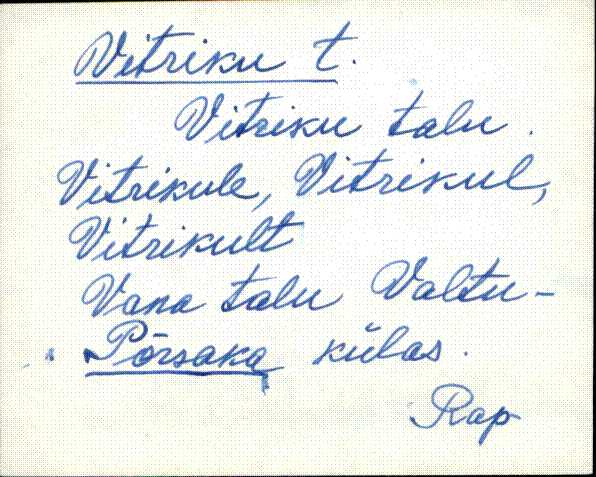 Vitriku t.
Vitriku talu.
Vitrikule, Vitrikul,
Vitrikult
Vana talu Valtu-
Põrsaka külas.
Rap